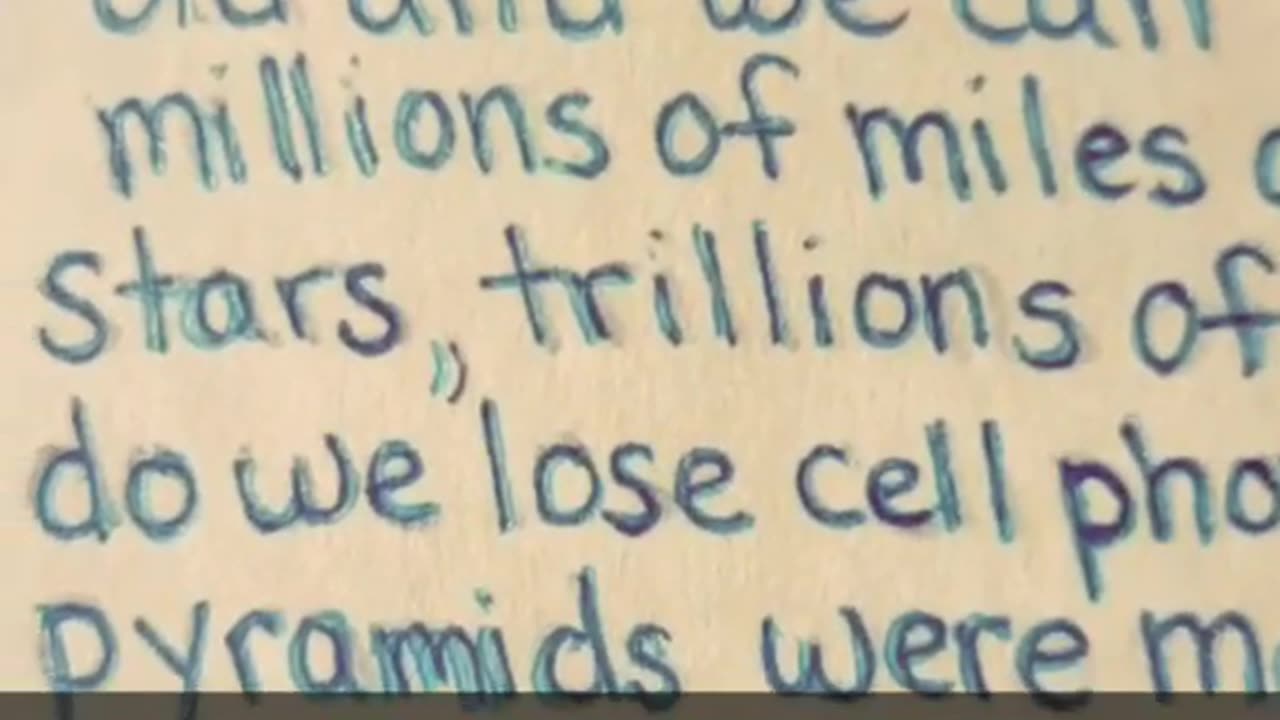 and we can
millions of miles
stars, trillions of
do we lose cell pho
pyramids were m